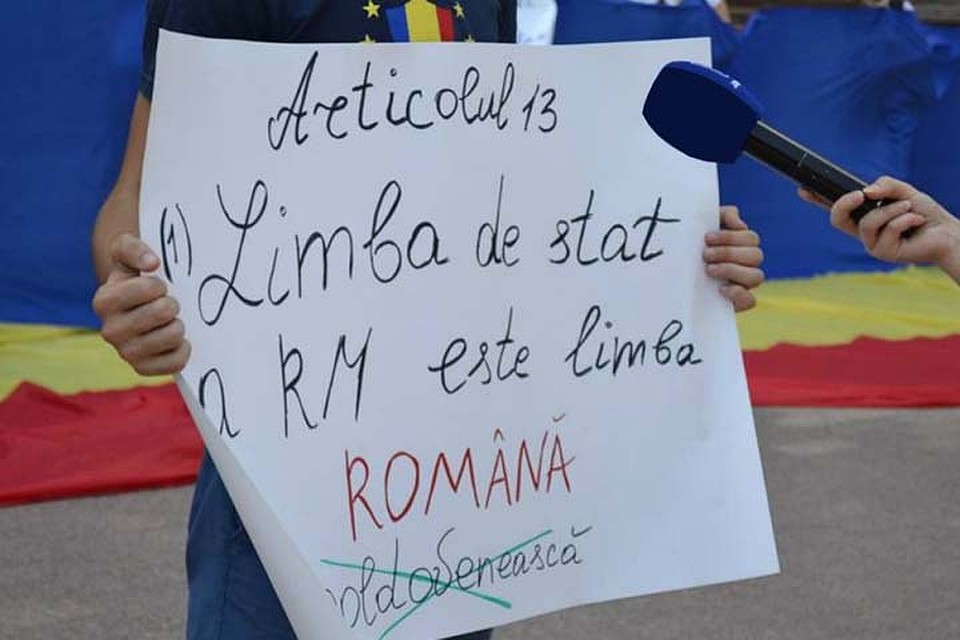 Articolul 13
(1) Limba de stat
a RM este limba
ROMÂNĂ
moldovenească